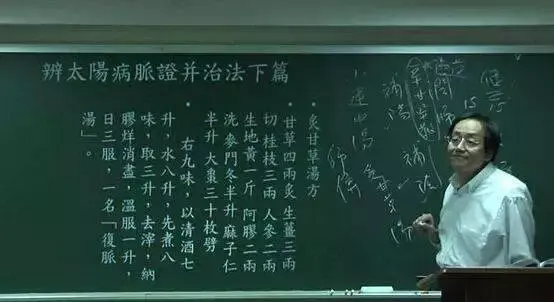 辨太陽病脈證并治法下篇
• 炙甘草湯方
甘草四兩炙 生薑三兩
切 桂枝三兩 人參二兩
生地黃一斤 阿膠二兩
洗 麥門冬半升 麻子仁
半升 大棗三十枚劈
• 右九味，以清酒七
升，水八升，先煮八
味，取三升，去滓，納
膠烊消盡，溫服一升，
日三服，一名「復脈
湯」。
15
補陽
小建中湯
炙甘草